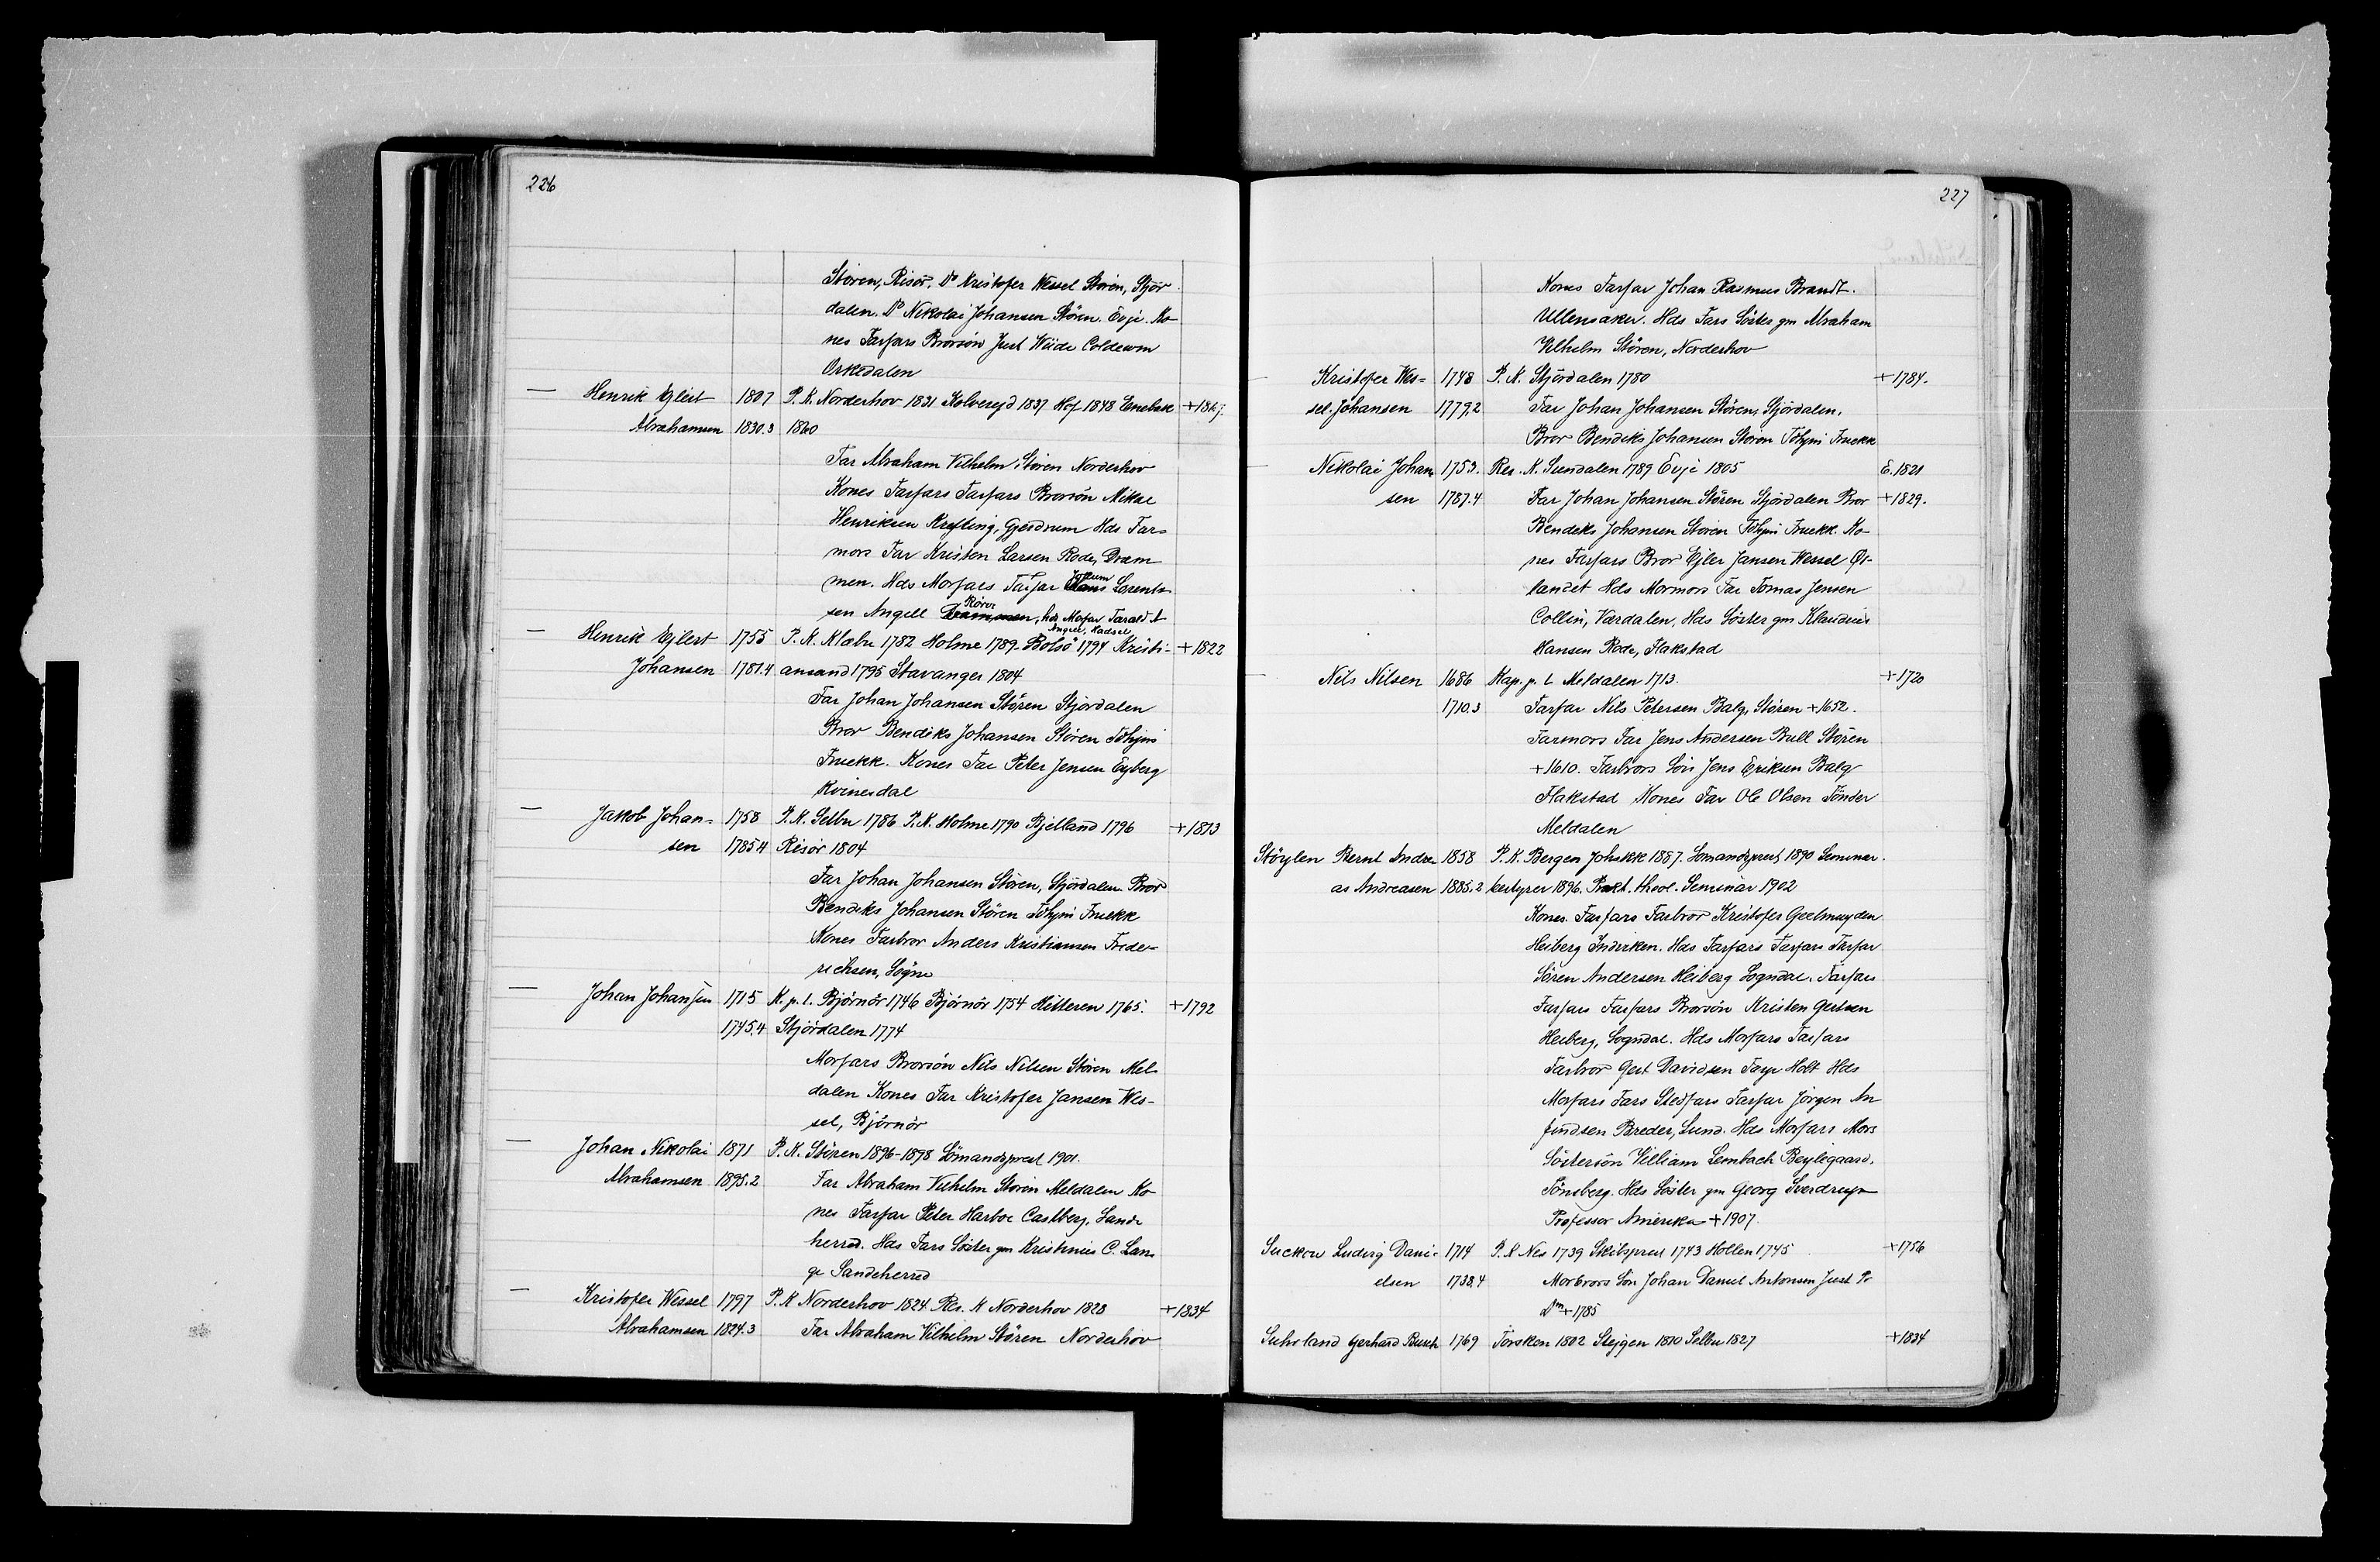 226
Stören, Risör. Do Kristofer Wessel Stören, Stjör
dalen. Do Nikolai Johansen Stören. Evje. Ko-
nes Farfars Brorsön Just Wiide Coldevin
Orkedalen
— Henrik Ejlert 1807 P. K. Norderhov 1831 Kolverejd 1837 Hof 1848 Enebak
Abrahamsen 1830.3 1860
Far Abraham Vilhelm Stören Norderhov
Kones Farfars Farfars Brorsön Mikae
Henriksen Krefting, Gjerdrum Hds Far-
mors Far Kristen Larsen Rode, Dram
men. Hds Morfars Farfar Jochum Lorent-
sen Angell Röros, hds Morfar Tarald A
Angel, Hadsel
— Henrik Ejlert 1755 P. K. Klæbu 1782 Holme 1789. Bolsö 1794 Kristi- +1822
Johansen 1781.4 ansand 1795 Stavanger 1804
Far Johan Johansen Stören Stjördalen
Bror Bendiks Johansen Stören Tðhjm
Fruekk. Kones Far Peter Jensen Eyberg
Kvinesdal
— Jakob Johan- 1758 P. K. Selbu 1786 P. K. Holme 1790 Bjelland 1796 +1813
sen 1785.4 Risör 1804
Far Johan Johansen Stören, Stjördalen Bror
Bendiks Johansen Stören Tðhjm Fruekk
Kones Farbror Anders Kristiansen Frede-
richsen, Sögne
— Johan Johansen 1715 K. p. l. Björnör 1746 Björnör 1754 Hitteren 1765. +1792
1745.4 Stjördalen 1774
Morfars Brorsön Nils Nilsen Stören Mel-
dalen Kones Far Kristofer Jansen Wes-
sel, Björnör
— Johan Nikolai 1871 P. K. Stören 1896-1898 Sömandsprest 1901.
Abrahamsen 1895.2 Far Abraham Vilhelm Stören Meldalen Ko
nes Farfar Peter Harboe Castberg, Sande
herred. Hds Fars Söster gm Kristinius C. Lan
ge Sandeherred
— Kristofer Wessel 1797 P. K Norderhov 1824 Res. K Norderhov 1828 +1834
Abrahamsen 1824.3 Far Abraham Vilhelm Stören Norderhov
227
Kones Farfar Johan Rasmus Brandt.
Ullensaker. Hds Fars Söster gm Abraham
Vilhelm Stören, Norderhov
— Kristofer Wes- 1748 P. K. Stjördalen 1780 +1784.
sel. Johansen 1779.2 Far Johan Johansen Stören, Stjördalen.
Bror Bendiks Johansen Stören Tðhjm Fruekk
— Nikolai Johan 1753. Res. K. Sundalen 1789 Evje 1805 E. 1821
sen 1787.4 Far Johan Johansen Stören Stjördalen Bror +1829.
Bendiks Johansen Stören Tðhjm Fruekk. Ko-
nes Farfars Bror Ejler Jansen Wessel Ør-
landet Hds Mormors Far Tomas Jensen
Collin, Værdalen. Hds Söster gm Klaudius
Hansen Rode, Flakstad
— Nils Nilsen 1686 Kap. p. l Meldalen 1713. +1720
1710.3 Farfar Nils Petersen Balg, Stören +1652.
Farmors Far Jens Andersen Bull Stören
+1610. Farbrors Sön Jens Eriksen Balg
Flakstad Kones Far Ole Olsen Tönder
Meldalen
Stöylen Bernt Andre 1858 P. K. Bergen Johskk 1887. Sömandsprest 1890 Seminar
as Andreasen 1885.2 bestyrer 1896. Prakt. theol. Seminar 1902
Kones. Farfars Farbror Kristofer Geelmuyden
Heiberg Indviken. Hds Farfars Farfars Farfar
Sören Andersen Heiberg Sogndal. Farfars
Farfars Farfars Brorsön Kristen Gertsen
Heiberg, Sogndal. Hds Morfars Farfars
Farbror Gert Davidsen Faye Holt Hds
Morfars Fars Stedfars Farfar Jörgen An
findsen Breder, Lund. Hds Morfars Mors
Söstersön Villiam Lembach Beylegaard.
Tönsberg. Hds Söster gm Georg Sverdrup
Professor Amerika +1907.
Suckow Ludvig Dani- 1714 P. K Nes 1739 Skibsprest 1743 Hollen 1745 +1756
elsen 1738.4 Morbrors Sön Johan Daniel Antonsen Just Pr
Dm +1785
Suhrland Gerhard Busch 1769 Torsken 1802 Stejgen 1810 Selbu 1827 +1834